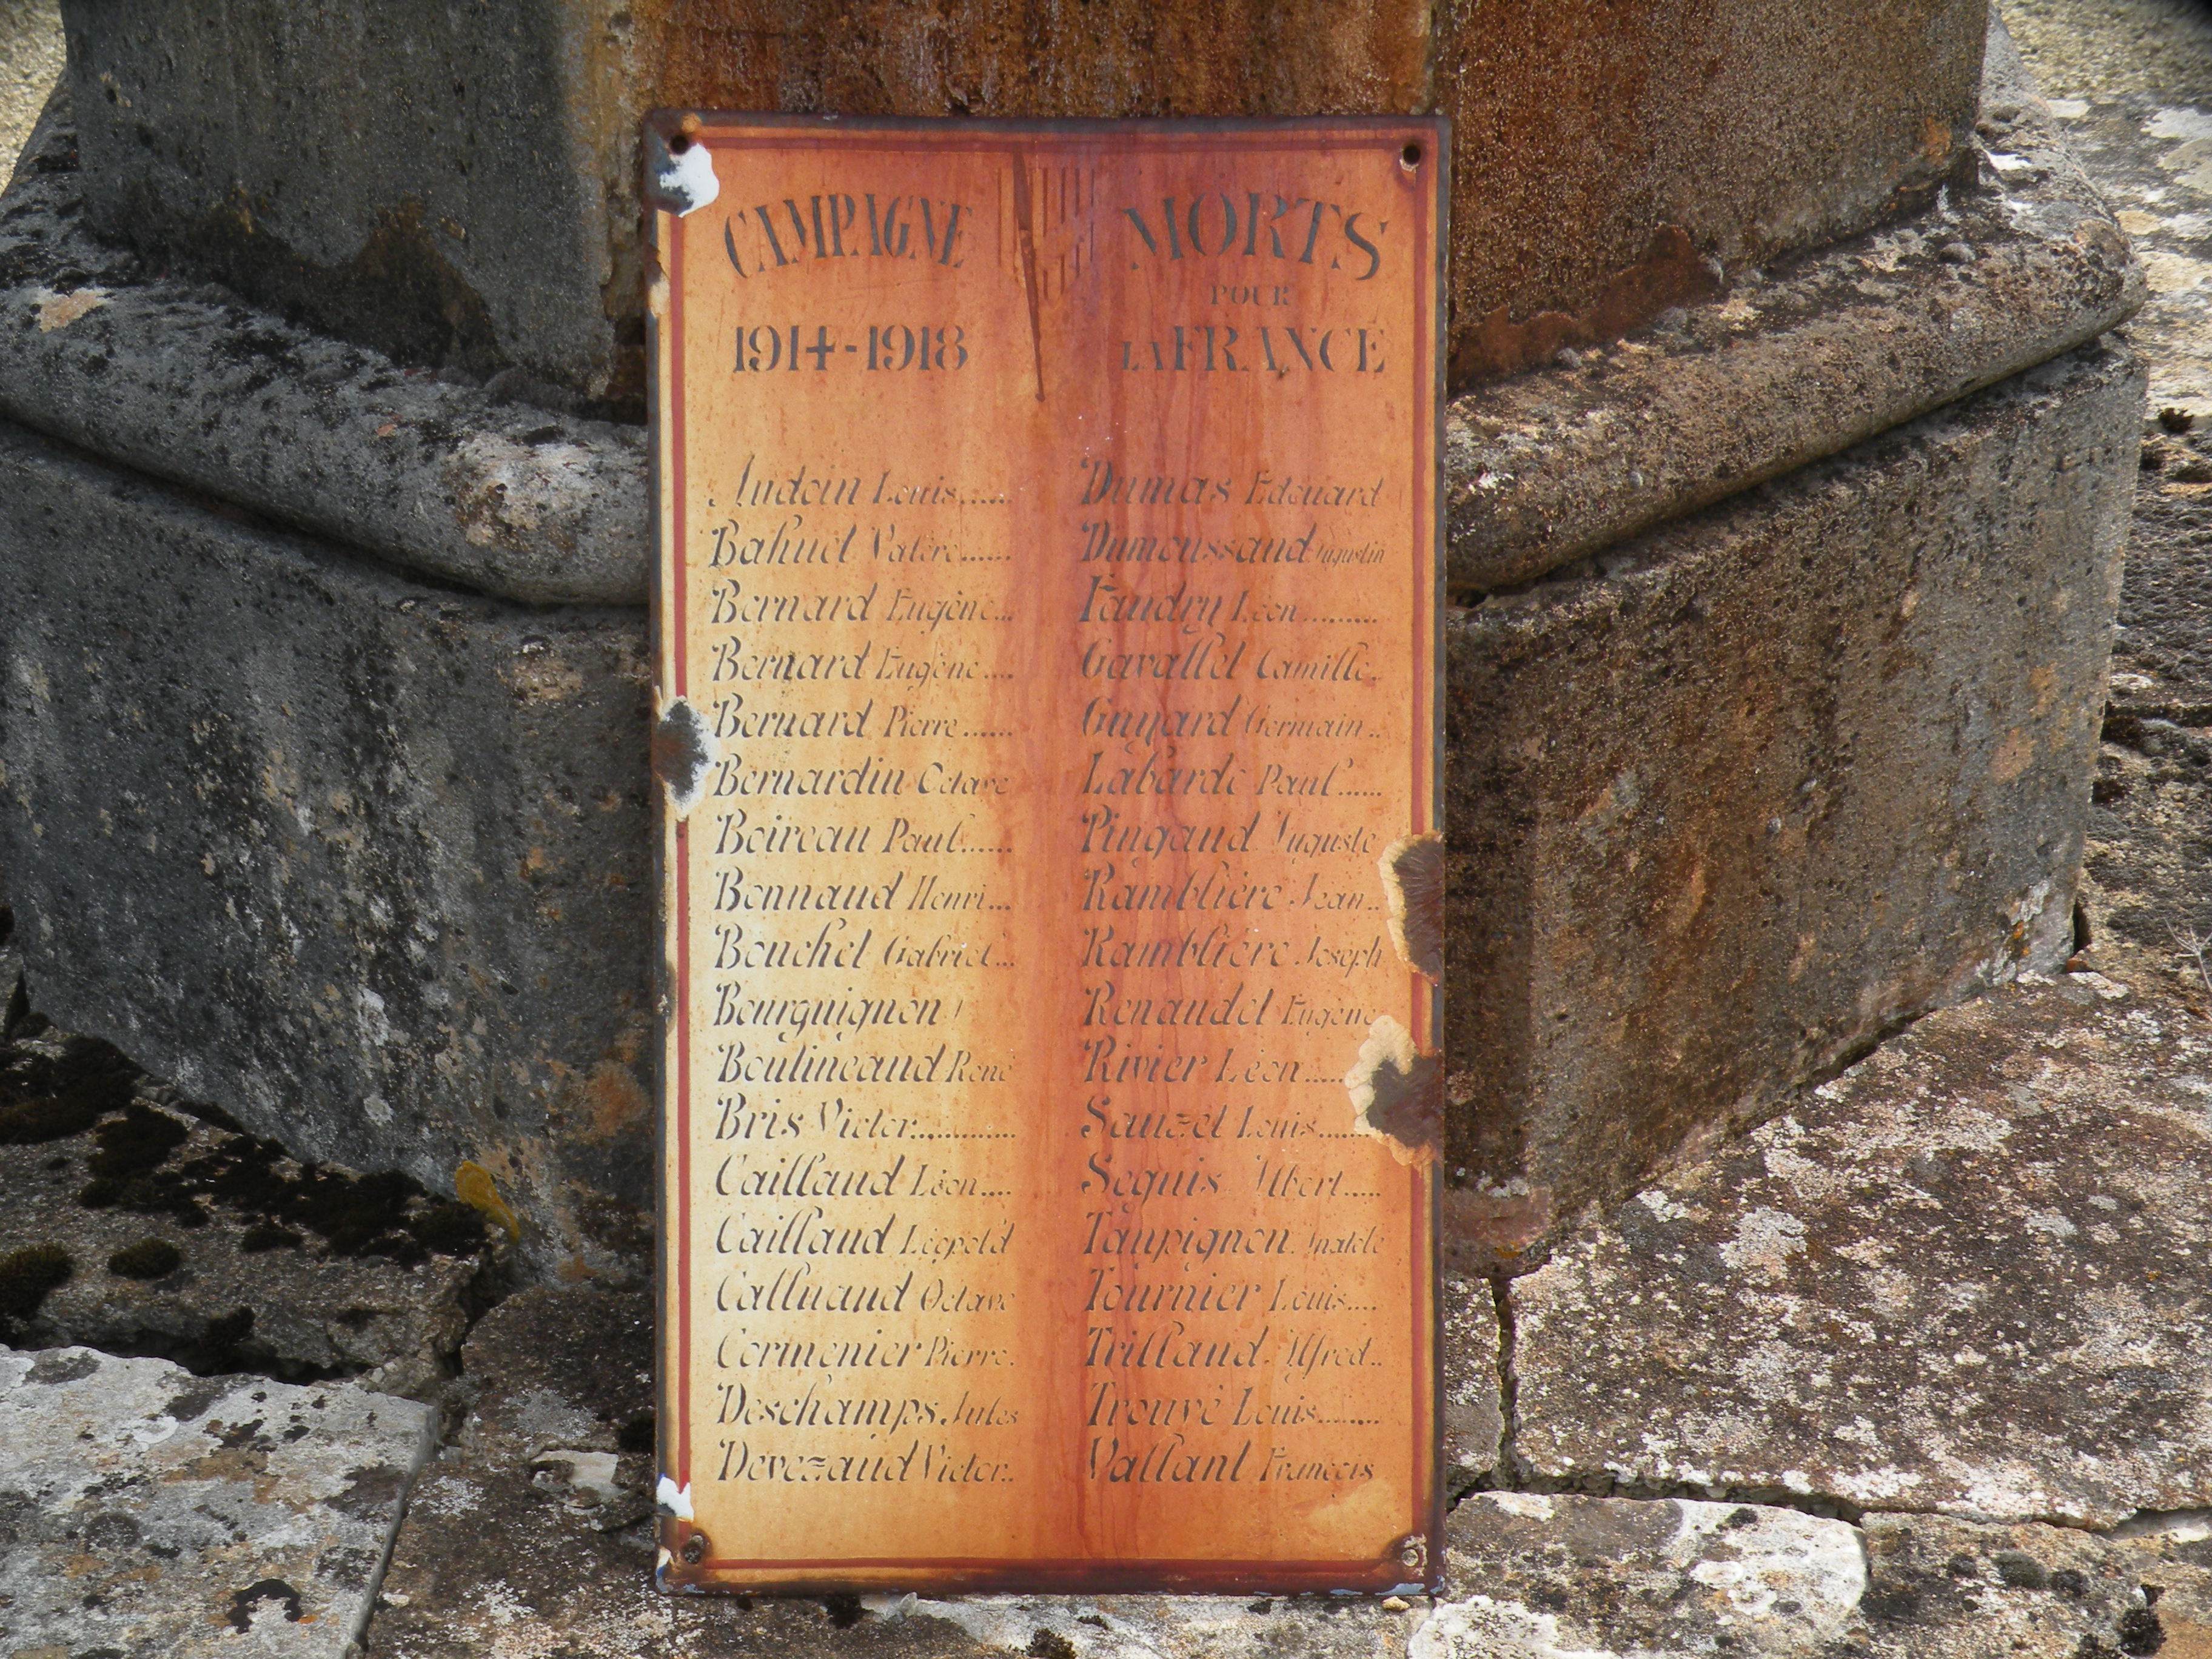 CAMPAGNE
1914-1918
Audoin Louis......
Bahuet Valère......
Bernard Eugène...
Bernard Eugène....
Bernard Pierre......
Bernardin Octave
Boireau Paul......
Bonnaud Henri...
Bouchet Gabriel...
Bourguignon J
Boulineaud René
Bris Victor.............
Caillaud Léon....
Caillaud Léopold
Calluaud Octave
Cormenier Pierre.
Deschamps Jules
Devezaud Victor..
MORTS
POUR
LA FRANCE
Dumas Edouard
Dumoussaud Augustin
Faudry Léon.........
Gavallet Camille..
Guyard Germain..
Labarde Paul......
Pingaud Auguste
Ramblière Jean..
Ramblière Joseph
Renaudet Eugène
Rivier Léon.....
Sauzet Louis.......
Seguis Albert.....
Taupignon Anatole
Tournier Louis....
Trillaud Alfred..
Trouvé Louis........
Vallant François